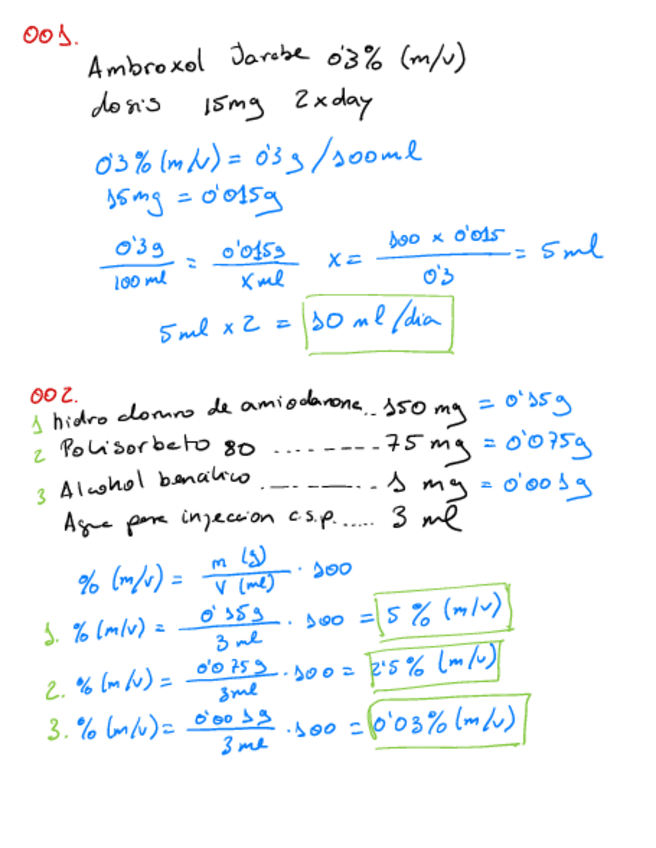 001.
Ambroxol Jarabe 0'3% (m/v)
dosis 15mg 2xday
0'3% (m/v) = 0'3g/100ml
15mg = 0'015g
0'3g / 100 ml = 0'015g / X ml   X = 100 x 0'015 / 0'3 = 5 ml
5ml x 2 = 10 ml/dia
002.
1 hidro cloruro de amiodarona.. 150 mg = 0'15g
2 Polisorbato 80 -------- 75 mg = 0'075g
3 Alcohol bencílico ........ 1 mg = 0'001g
Agua para inyeccion c.s.p. ..... 3 ml
% (m/v) = m (g) / V (ml) · 100
1. % (m/v) = 0'15g / 3 ml · 100 = 5 % (m/v)
2. % (m/v) = 0'075g / 3ml · 100 = 2'5% (m/v)
3. % (m/v) = 0'001g / 3 ml · 100 = 0'03% (m/v)